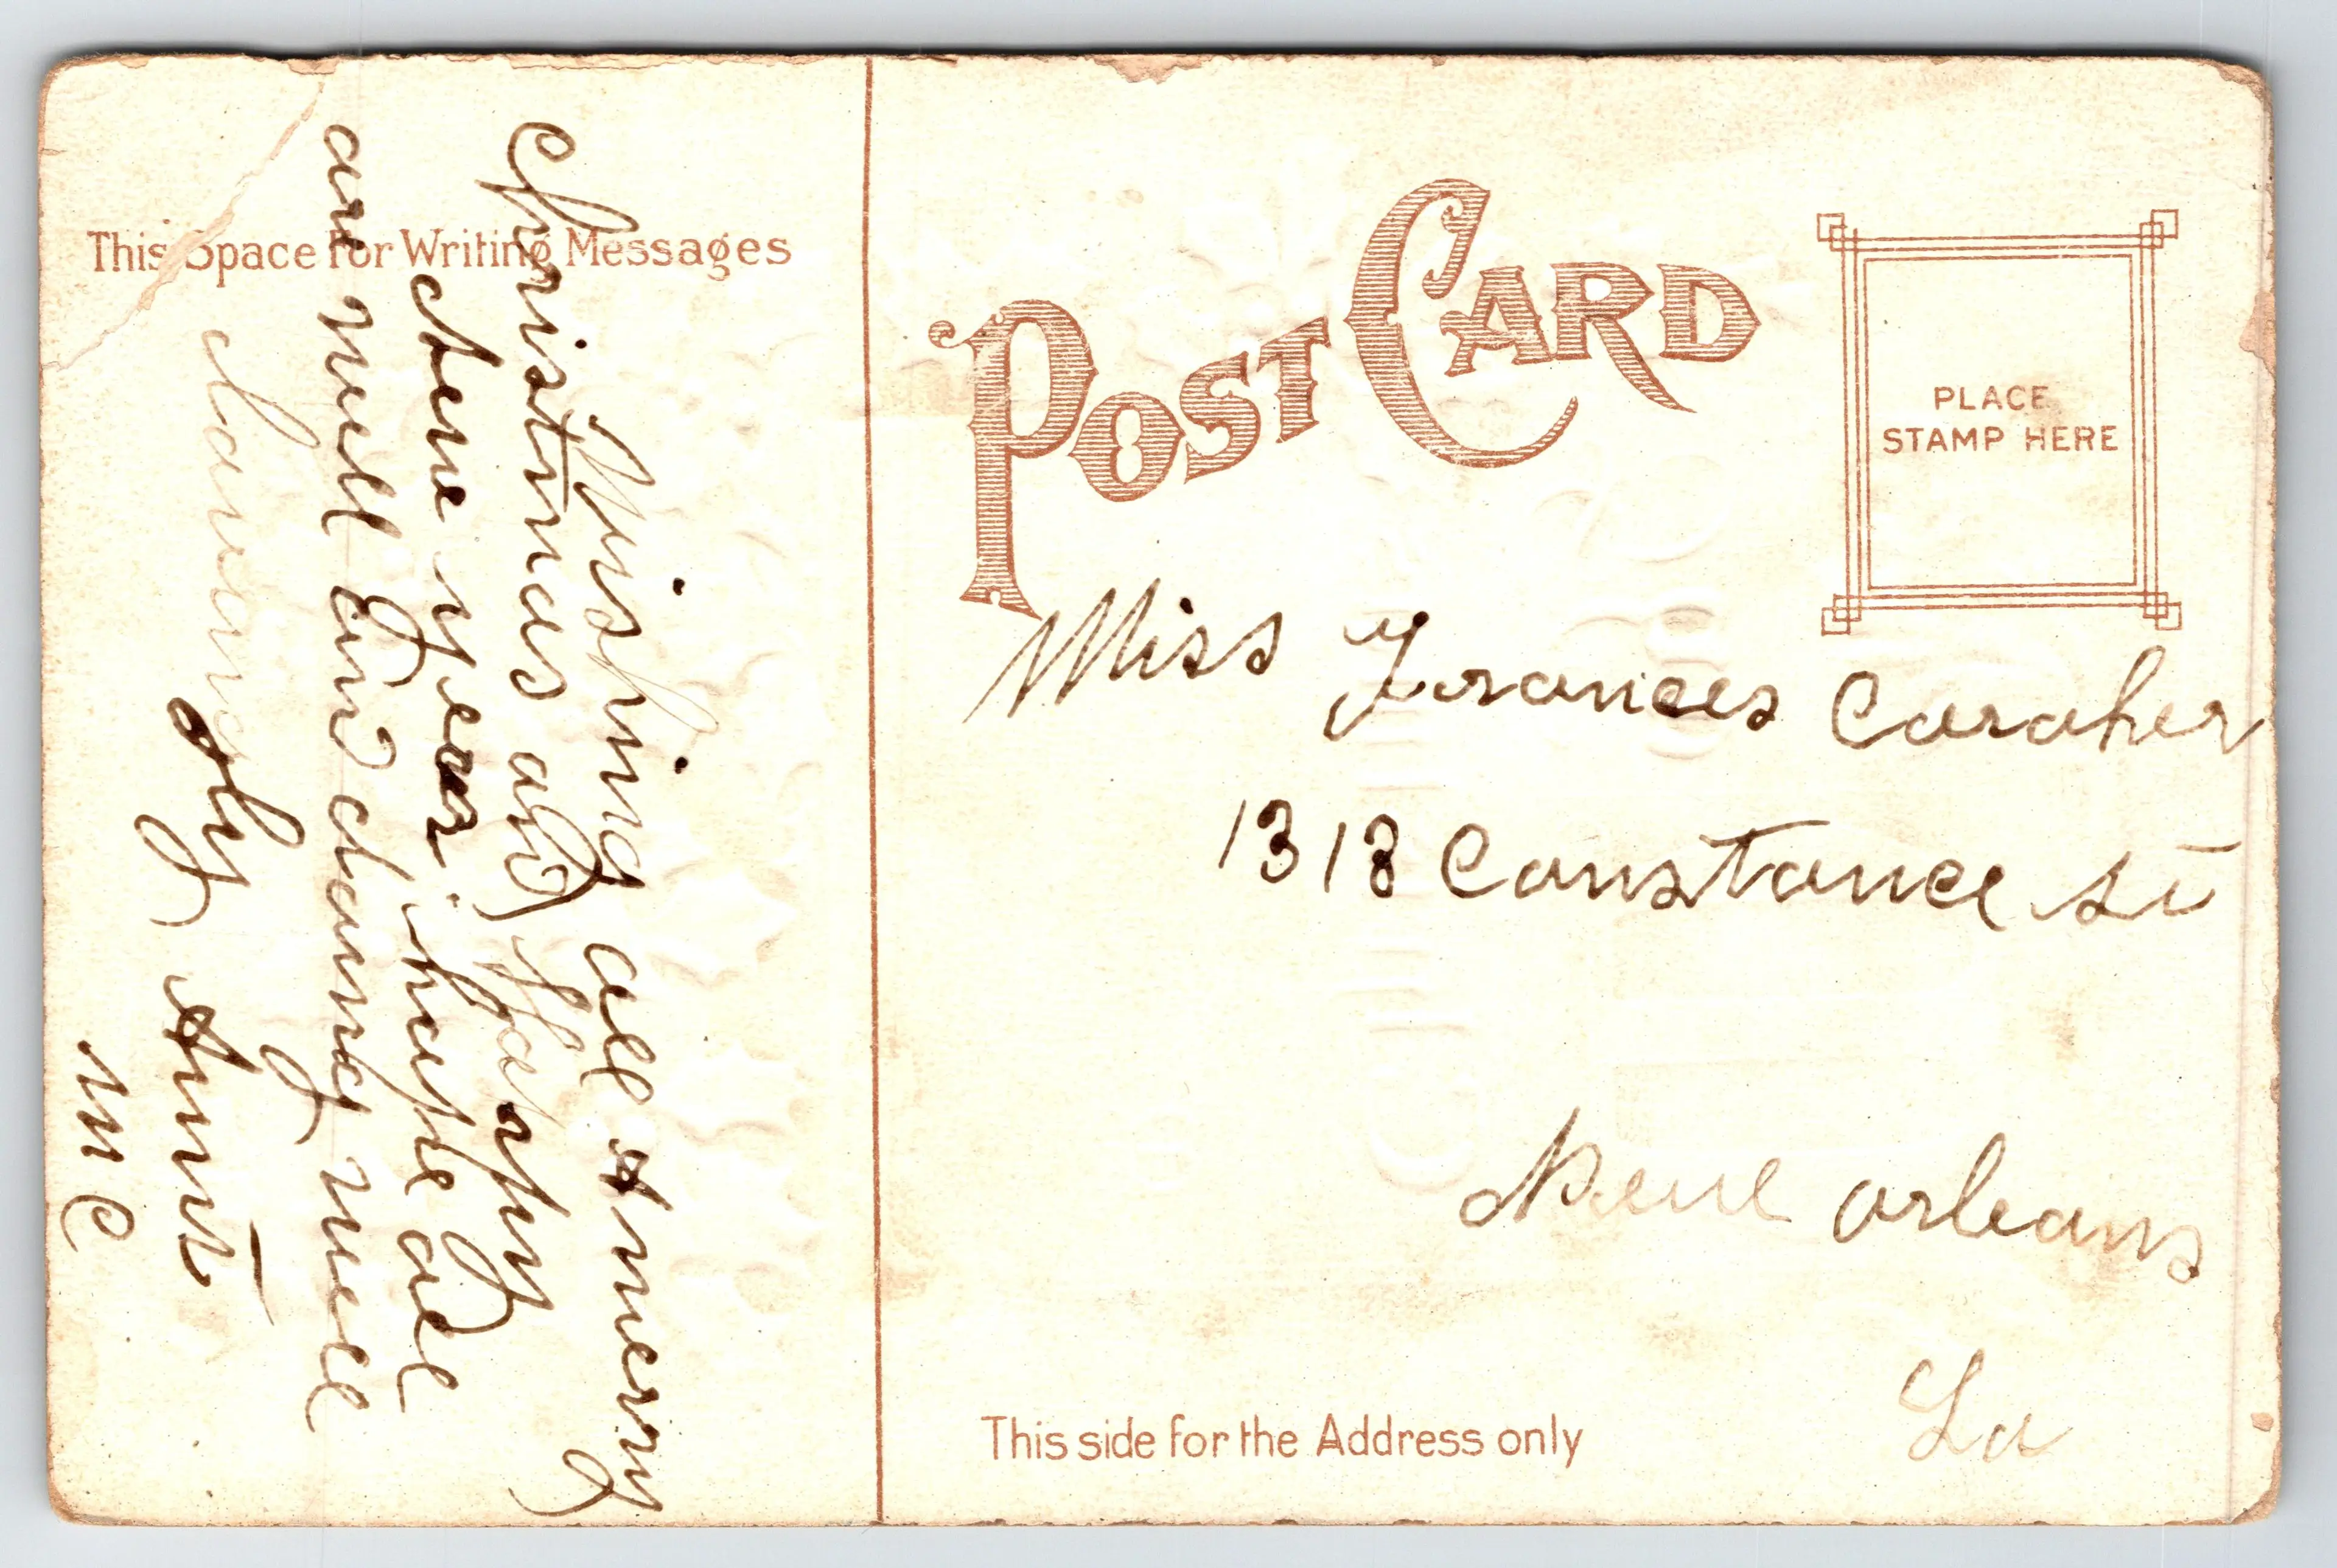 POST CARD
PLACE
STAMP HERE
This Space for Writing Messages
Wishing all A merry
Christmas and Happy
New year hope all
are well and doing well
Lovingly Aunt
M C
Miss Frances Caraher
1318 Constance St
New Orleans
La
This side for the Address only